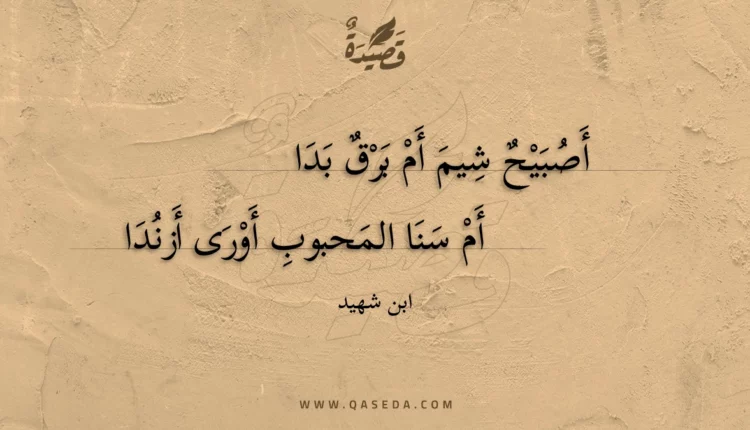 قَصِيدَةٌ
أَصُبَيْحٌ شِيمَ أَمْ بَرْقٌ بَدَا
أَمْ سَنَا المَحبوبِ أَوْرَى أَزنُدَا
ابن شهيد
WWW.QASEDA.COM